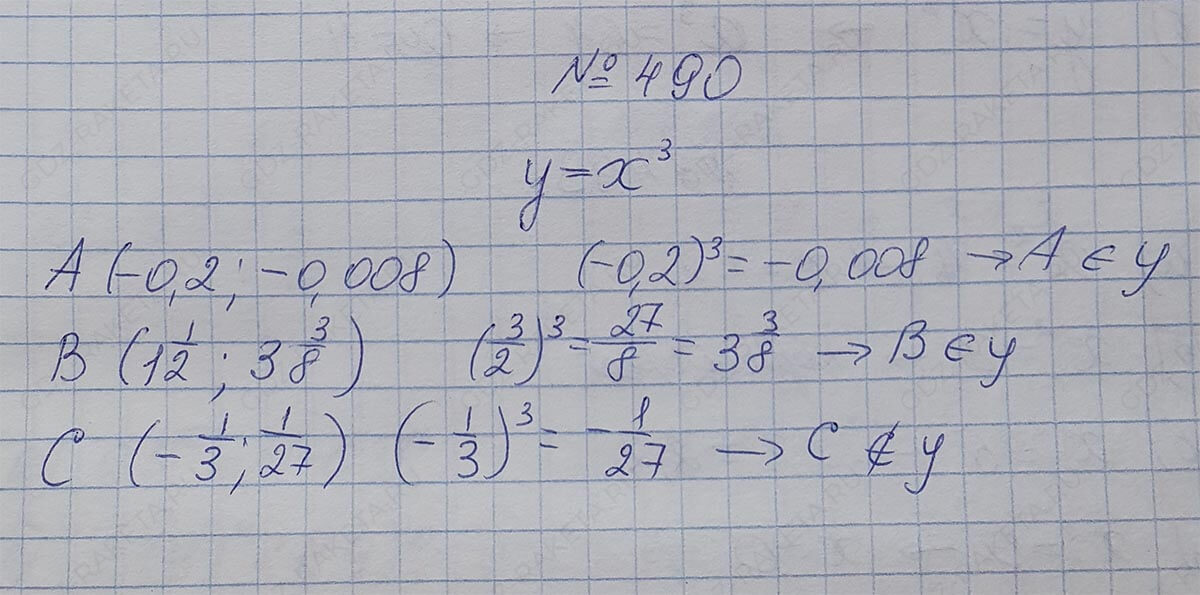 № 490
y = x³
A (-0,2; -0,008) (-0,2)³ = -0,008 → A ∈ y
B (1 1/2; 3 3/8) (3/2)³ = 27/8 = 3 3/8 → B ∈ y
C (-1/3; 1/27) (-1/3)³ = -1/27 → C ∉ y